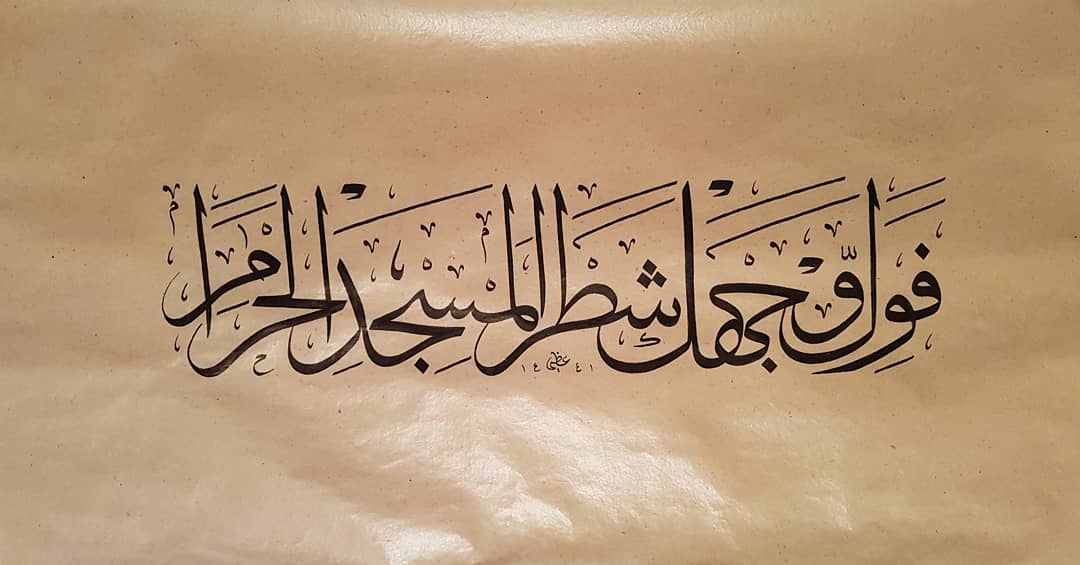 فَوَلِّ وَجْهَكَ شَطْرَ الْمَسْجِدِ الْحَرَامِ
١٤٤١